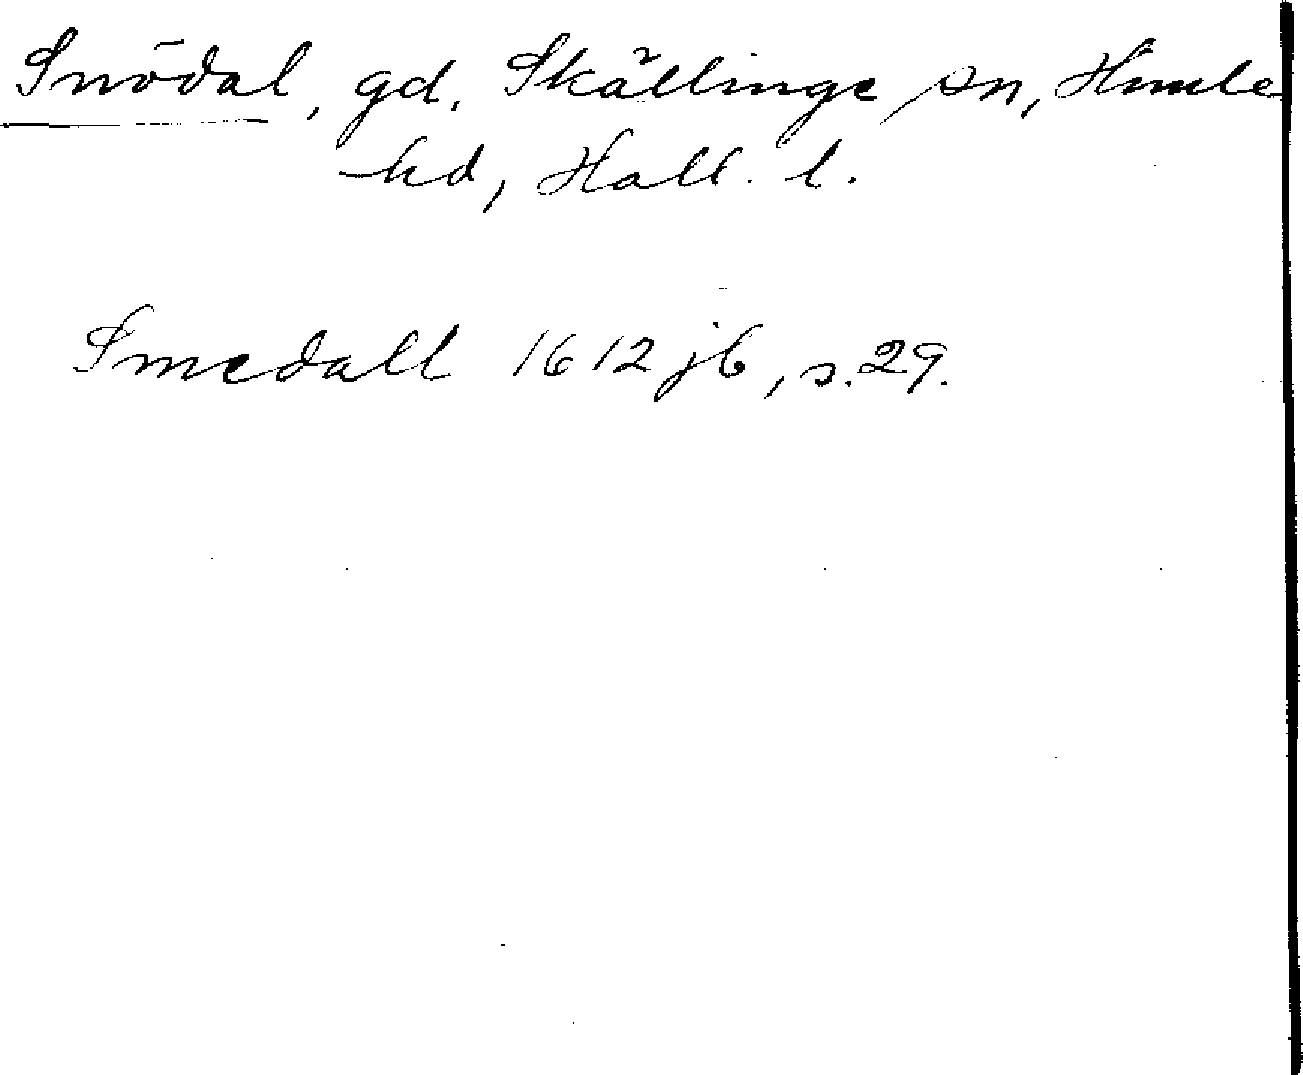 Snödal, gd, Skällinge sn, Himle
hd, Hall. l.
Smedall 1612 jb, s. 29.